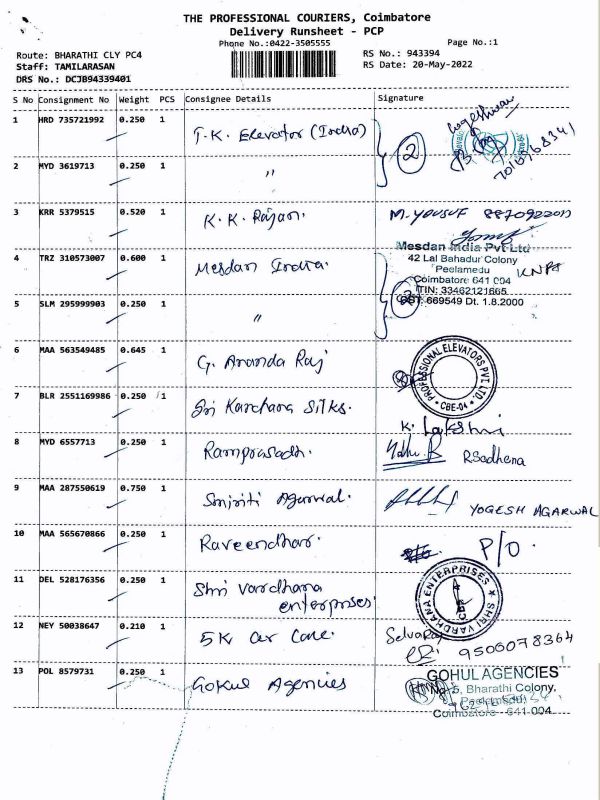 THE PROFESSIONAL COURIERS, Coimbatore
Delivery Runsheet - PCP
Phone No.:0422-3505555
Page No.:1
Route: BHARATHI CLY PC4
RS No.: 943394
Staff: TAMILARASAN
RS Date: 20-May-2022
DRS No.: DCJB94339401
S No Consignment No Weight PCS Consignee Details Signature
1 HRD 735721992 0.250 1 T.K. Elevator (India) 2
2 MYD 3619713 0.250 1 "
3 KRR 5379515 0.520 1 K.K. Rajan. M. YOUSUF
Mesdan India Pvt Ltd
4 TRZ 310573007 0.600 1 Mesdan India.
42 Lal Bahadur Colony
Peelamedu
Coimbatore 641 004
TIN: 33462121665
5 SLM 295999903 0.250 1 " 2
CST: 669549 Dt. 1.8.2000
6 MAA 563549485 0.645 1 G. Ananda Raj
PROFESSIONAL ELEVATORS PVT LTD.
CBE-04
7 BLR 2551169986 0.250 1 Sri Kanchana Silks.
K. Lakshmi
8 MYD 6557713 0.250 1 Ramprasadh. R.Sadhena
9 MAA 287550619 0.750 1 Smiriti Agarwal. YOGESH AGARWAL
10 MAA 565670866 0.250 1 Raveendhar. P/O.
11 DEL 528176356 0.250 1 Shri Vardhana
enterprises
SHRI VARDHANA ENTERPRISES
CBE
12 NEY 50038647 0.210 1 5K car Care. Selvaraj
9506078364
13 POL 8579731 0.250 1 Gokul Agencies
GOHUL AGENCIES
No-5, Bharathi Colony,
Peelamedu
Coimbatore - 641 004.